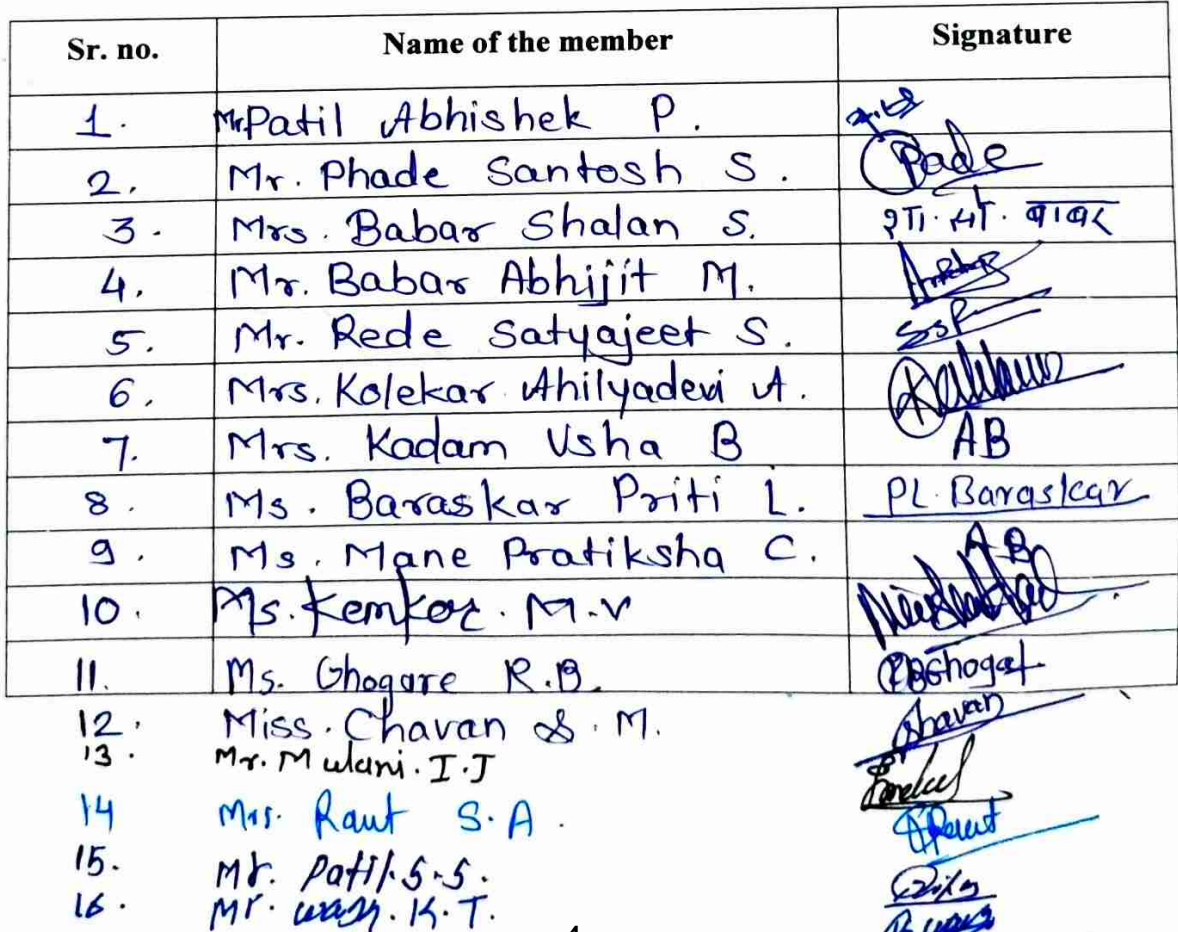 Sr. no. Name of the member Signature
1. Mr Patil Abhishek P.
2. Mr. Phade Santosh S. Pade
3. Mrs. Babar Shalan S. शा. सो. बाबर
4. Mr. Babar Abhijit M.
5. Mr. Rede Satyajeet S. SSR
6. Mrs. Kolekar Ahilyadevi A.
7. Mrs. Kadam Usha B AB
8. Ms. Baraskar Priti L. PL. Baraskar
9. Ms. Mane Pratiksha C. AB
10. Ms. Kemkar. M.V
11. Ms. Ghogare R.B.
12. Miss. Chavan S. M. Chavan
13. Mr. Mulani. I.J
14 Mrs. Raut S.A. Raut
15. Mr. Patil. S.S.
16. Mr. K.T.